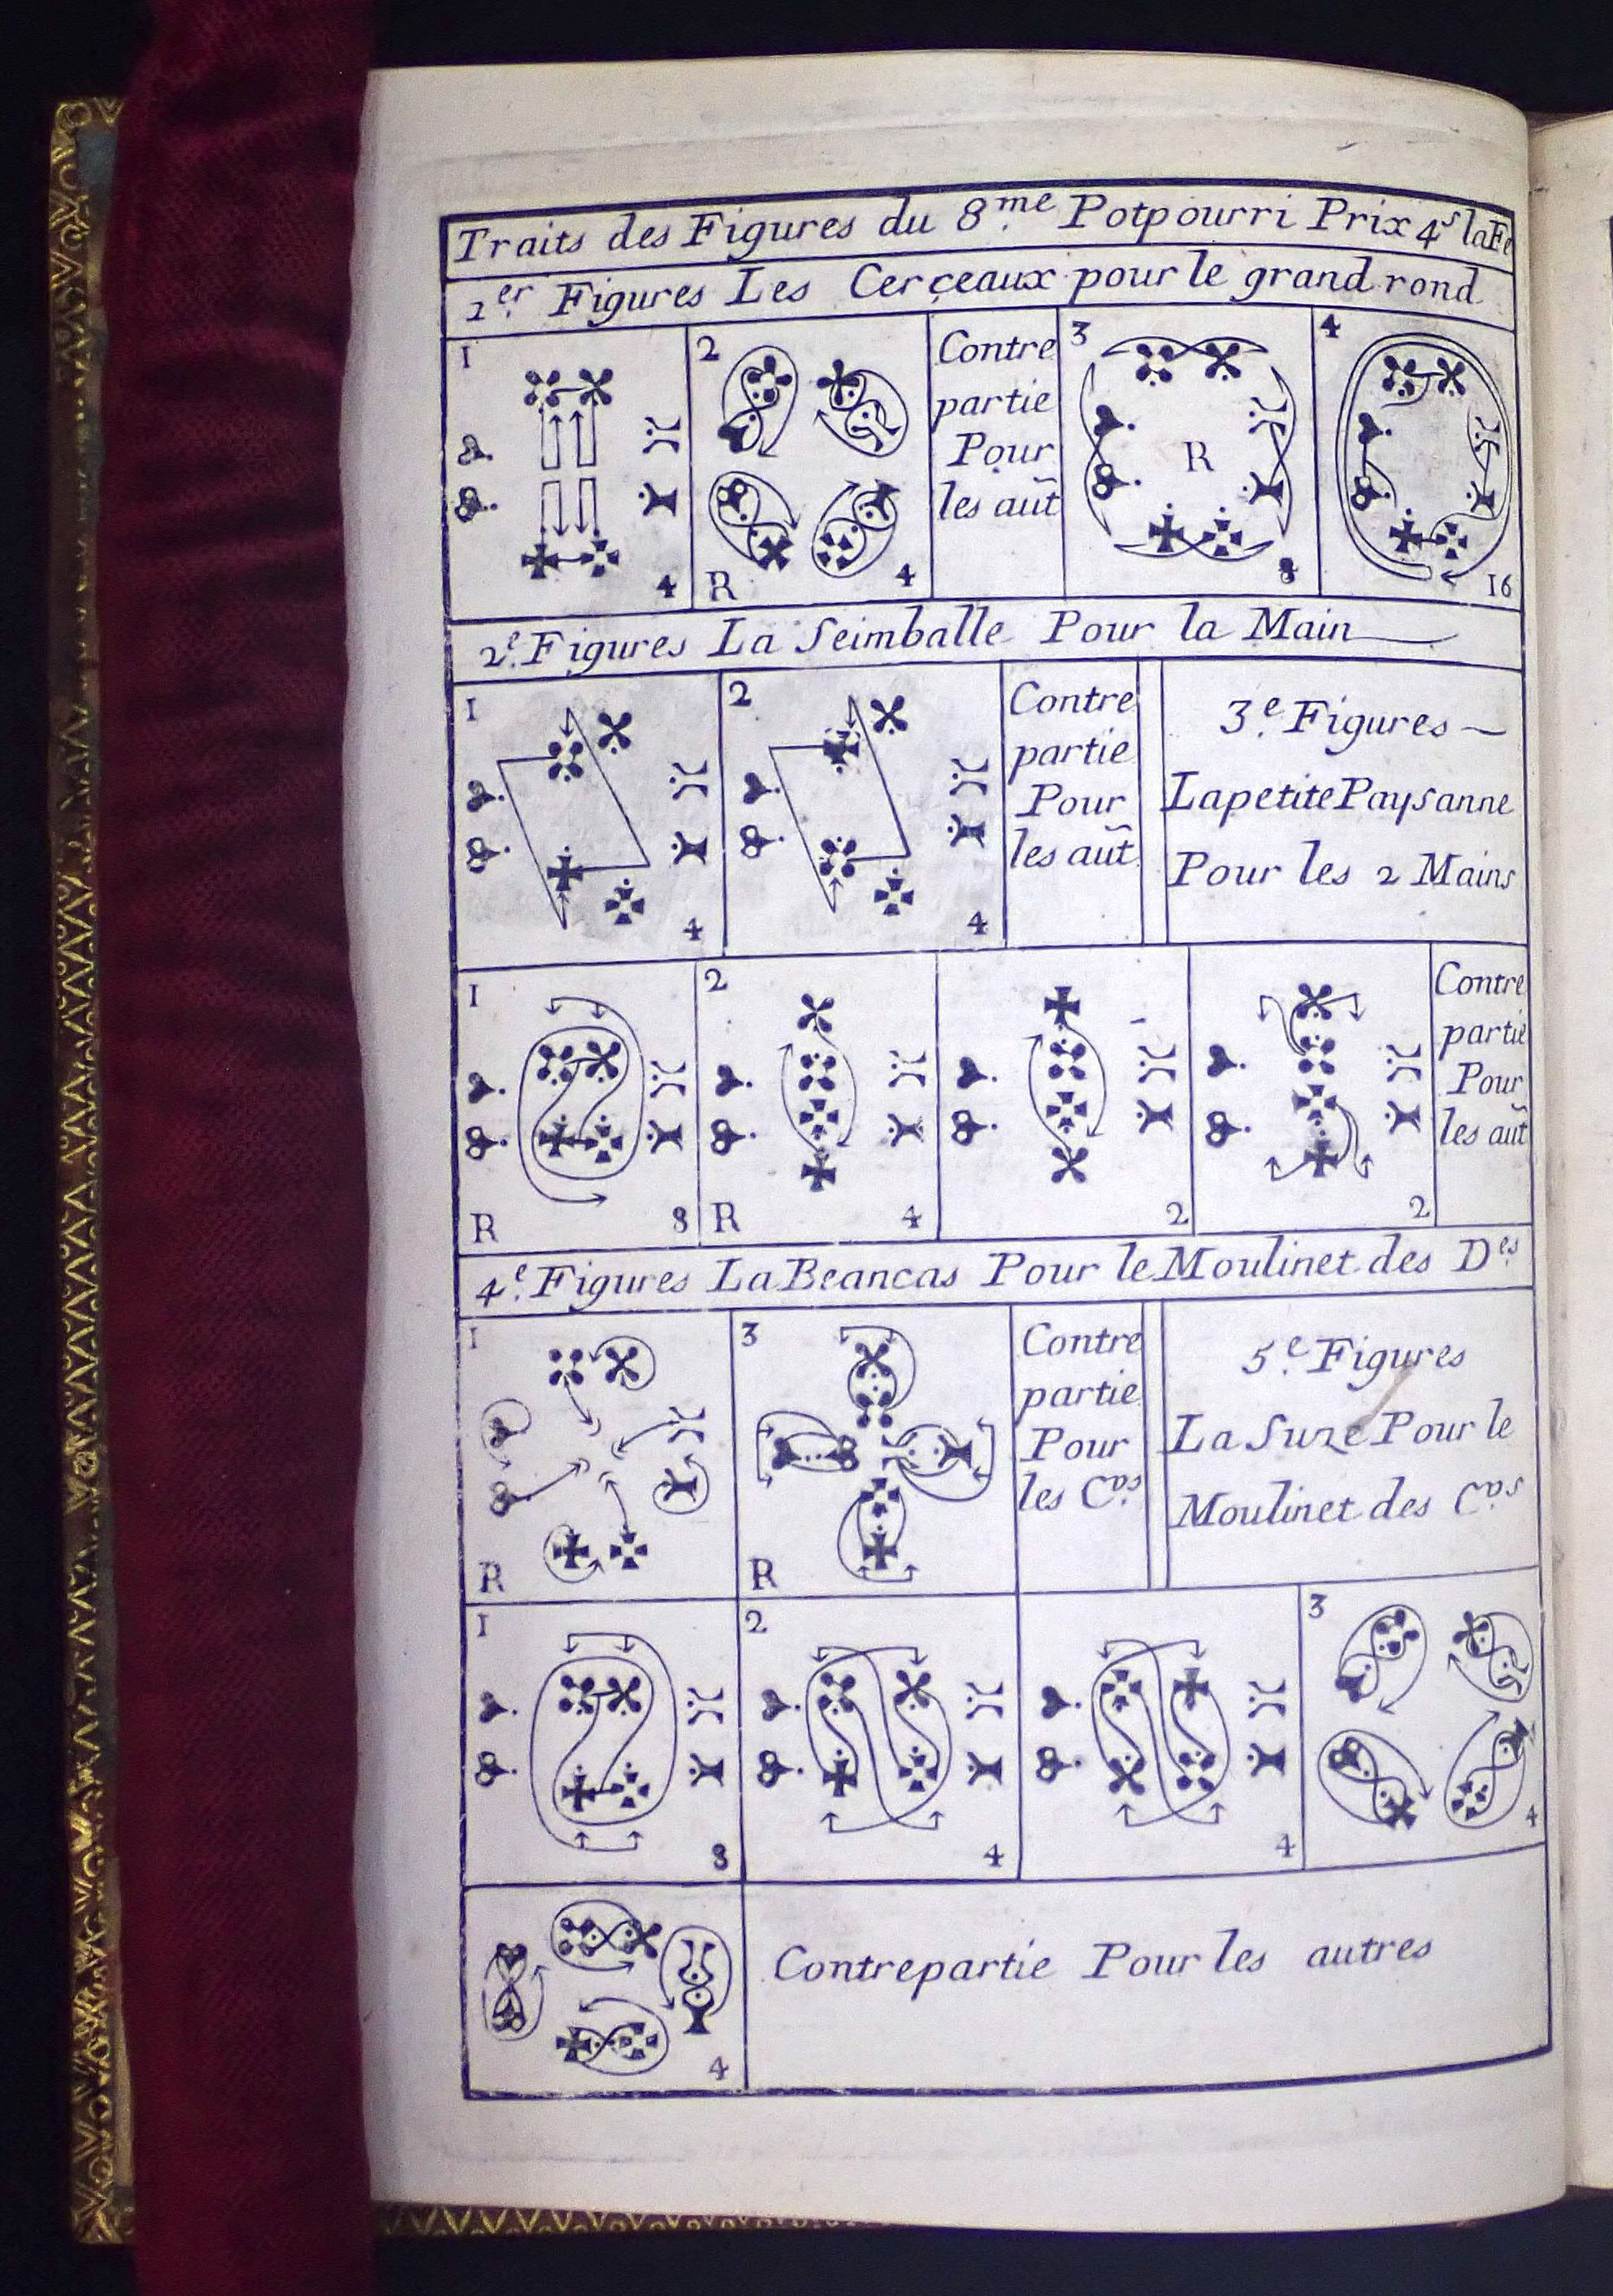 Traits des Figures du 8.me Potpourri Prix 4s laFe
1er. Figures Les Cerçeaux pour le grand rond
1
2
Contre
partie
Pour
les aut̃
3
4
R
4
R
4
8
16
2e. Figures La Seimballe Pour la Main
1
2
Contre
partie
Pour
les aut̃
3e. Figures
Lapetite Paysanne
Pour les 2 Mains
4
4
1
2
Contre
partie
Pour
les aut̃
R
8
R
4
2
2
4e. Figures La Beancas Pour le Moulinet des Des.
1
3
Contre
partie
Pour
les Cvs.
5e. Figures
La Suze Pour le
Moulinet des Cvs
R
R
1
2
3
8
4
4
4
4
Contrepartie Pour les autres